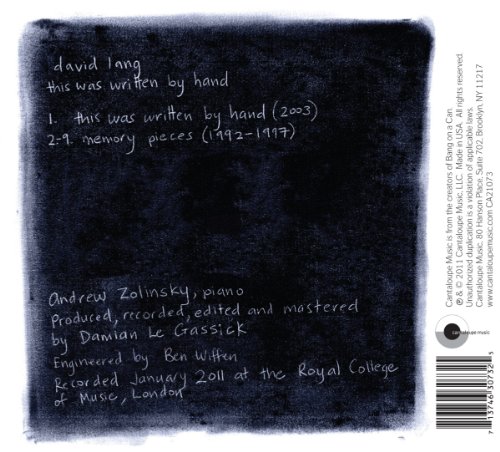 david lang
this was written by hand
1. this was written by hand (2003)
2-9. memory pieces (1992-1997)
Andrew Zolinsky, piano
Produced, recorded, edited and mastered
by Damian Le Gassick
Engineered by Ben Witten
Recorded January 2011 at the Royal College
of Music, London
Cantaloupe Music is from the creators of Bang on a Can.
℗ & © 2011 Cantaloupe Music, LLC. Made in USA. All rights reserved.
Unauthorized duplication is a violation of applicable laws.
Cantaloupe Music, 80 Hanson Place, Suite 702, Brooklyn, NY 11217
www.cantaloupemusic.com CA21073
cantaloupe music
7 13746 30732 5